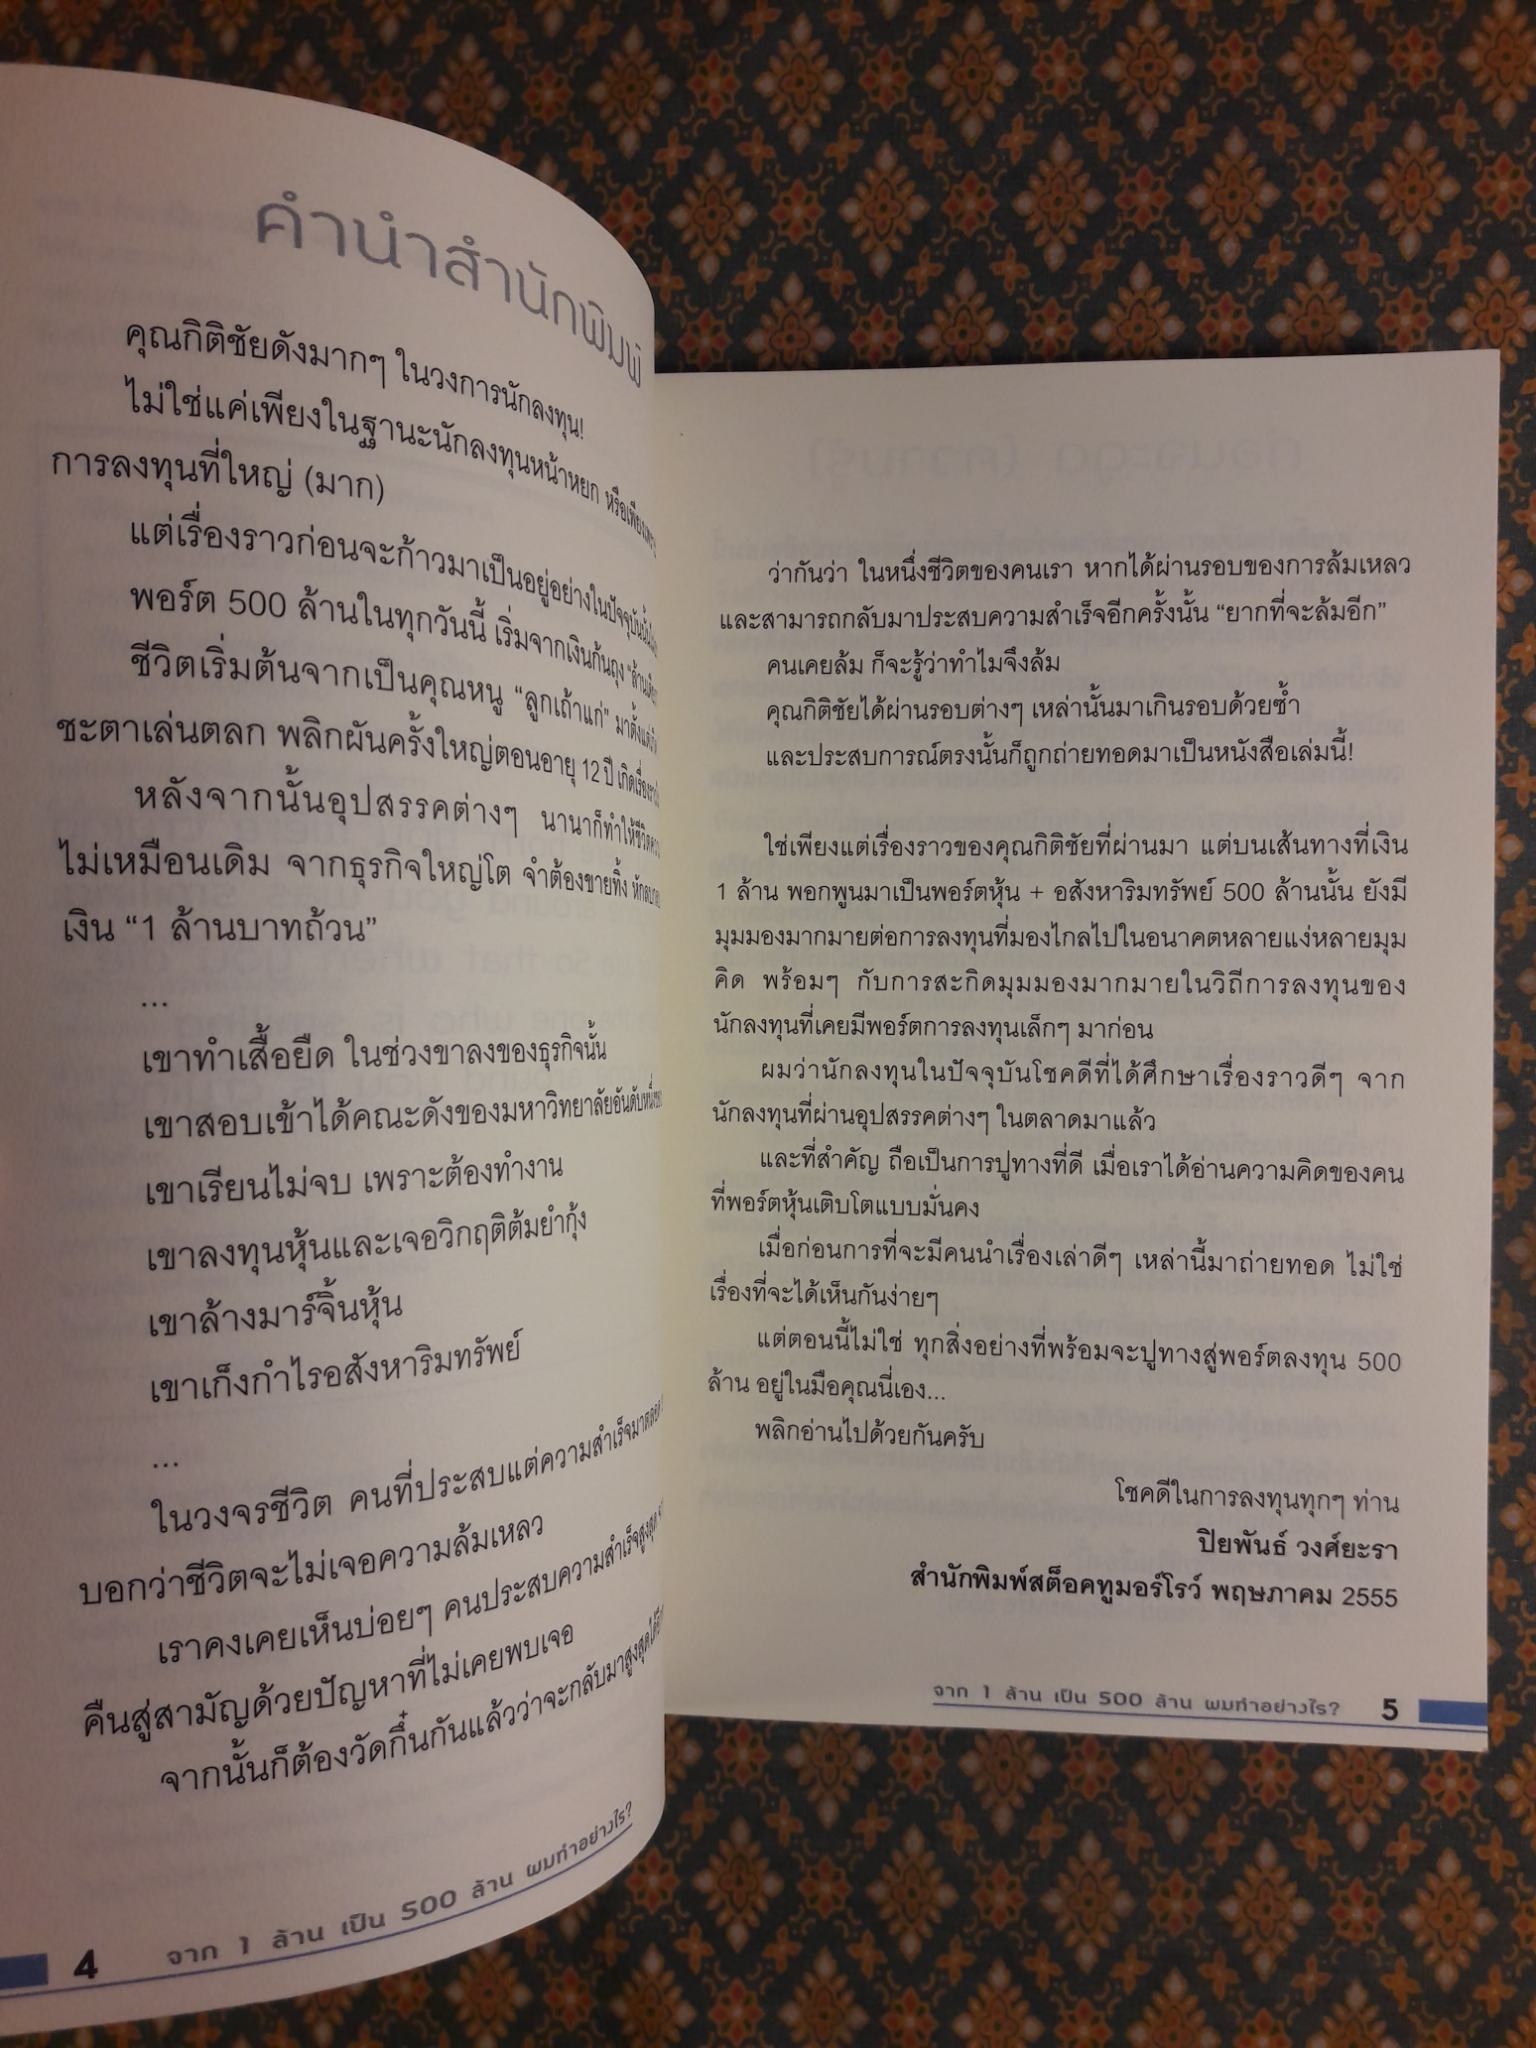 คำนำสำนักพิมพ์
คุณกิติชัยดังมากๆ ในวงการนักลงทุน!
ไม่ใช่แค่เพียงในฐานะนักลงทุนหน้าหยก หรือเพียงเพราะ
การลงทุนที่ใหญ่ (มาก)
แต่เรื่องราวก่อนจะก้าวมาเป็นอยู่อย่างในปัจจุบันนั้น
พอร์ต 500 ล้านในทุกวันนี้ เริ่มจากเงินก้นถุง
ชีวิตเริ่มต้นจากเป็นคุณหนู “ลูกเถ้าแก่” มาตั้งแต่
ชะตาเล่นตลก พลิกผันครั้งใหญ่ตอนอายุ 12 ปี
หลังจากนั้นอุปสรรคต่างๆ นานาก็ทำให้ชีวิต
ไม่เหมือนเดิม จากธุรกิจใหญ่โต จำต้องขายทิ้ง
เงิน “1 ล้านบาทถ้วน”
...
เขาทำเสื้อยืด ในช่วงขาลงของธุรกิจนั้น
เขาสอบเข้าได้คณะดังของมหาวิทยาลัยอันดับหนึ่ง
เขาเรียนไม่จบ เพราะต้องทำงาน
เขาลงทุนหุ้นและเจอวิกฤติต้มยำกุ้ง
เขาล้างมาร์จิ้นหุ้น
เขาเก็งกำไรอสังหาริมทรัพย์
...
ในวงจรชีวิต คนที่ประสบแต่ความสำเร็จมาตลอด
บอกว่าชีวิตจะไม่เจอความล้มเหลว
เราคงเคยเห็นบ่อยๆ คนประสบความสำเร็จสูงสุด
คืนสู่สามัญด้วยปัญหาที่ไม่เคยพบเจอ
จากนั้นก็ต้องวัดกึ๋นกันแล้วว่าจะกลับมาสูงสุดได้
4 จาก 1 ล้าน เป็น 500 ล้าน ผมทำอย่างไร?
ว่ากันว่า ในหนึ่งชีวิตของคนเรา หากได้ผ่านรอบของการล้มเหลว
และสามารถกลับมาประสบความสำเร็จอีกครั้งนั้น “ยากที่จะล้มอีก”
คนเคยล้ม ก็จะรู้ว่าทำไมจึงล้ม
คุณกิติชัยได้ผ่านรอบต่างๆ เหล่านั้นมาเกินรอบด้วยซ้ำ
และประสบการณ์ตรงนั้นก็ถูกถ่ายทอดมาเป็นหนังสือเล่มนี้!
ใช่เพียงแต่เรื่องราวของคุณกิติชัยที่ผ่านมา แต่บนเส้นทางที่เงิน
1 ล้าน พอกพูนมาเป็นพอร์ตหุ้น + อสังหาริมทรัพย์ 500 ล้านนั้น ยังมี
มุมมองมากมายต่อการลงทุนที่มองไกลไปในอนาคตหลายแง่หลายมุม
คิด พร้อมๆ กับการสะกิดมุมมองมากมายในวิถีการลงทุนของ
นักลงทุนที่เคยมีพอร์ตการลงทุนเล็กๆ มาก่อน
ผมว่านักลงทุนในปัจจุบันโชคดีที่ได้ศึกษาเรื่องราวดีๆ จาก
นักลงทุนที่ผ่านอุปสรรคต่างๆ ในตลาดมาแล้ว
และที่สำคัญ ถือเป็นการปูทางที่ดี เมื่อเราได้อ่านความคิดของคน
ที่พอร์ตหุ้นเติบโตแบบมั่นคง
เมื่อก่อนการที่จะมีคนนำเรื่องเล่าดีๆ เหล่านี้มาถ่ายทอด ไม่ใช่
เรื่องที่จะได้เห็นกันง่ายๆ
แต่ตอนนี้ไม่ใช่ ทุกสิ่งอย่างที่พร้อมจะปูทางสู่พอร์ตลงทุน 500
ล้าน อยู่ในมือคุณนี่เอง...
พลิกอ่านไปด้วยกันครับ
โชคดีในการลงทุนทุกๆ ท่าน
ปิยพันธ์ วงศ์ยะรา
สำนักพิมพ์สต็อคทูมอร์โรว์ พฤษภาคม 2555
จาก 1 ล้าน เป็น 500 ล้าน ผมทำอย่างไร? 5